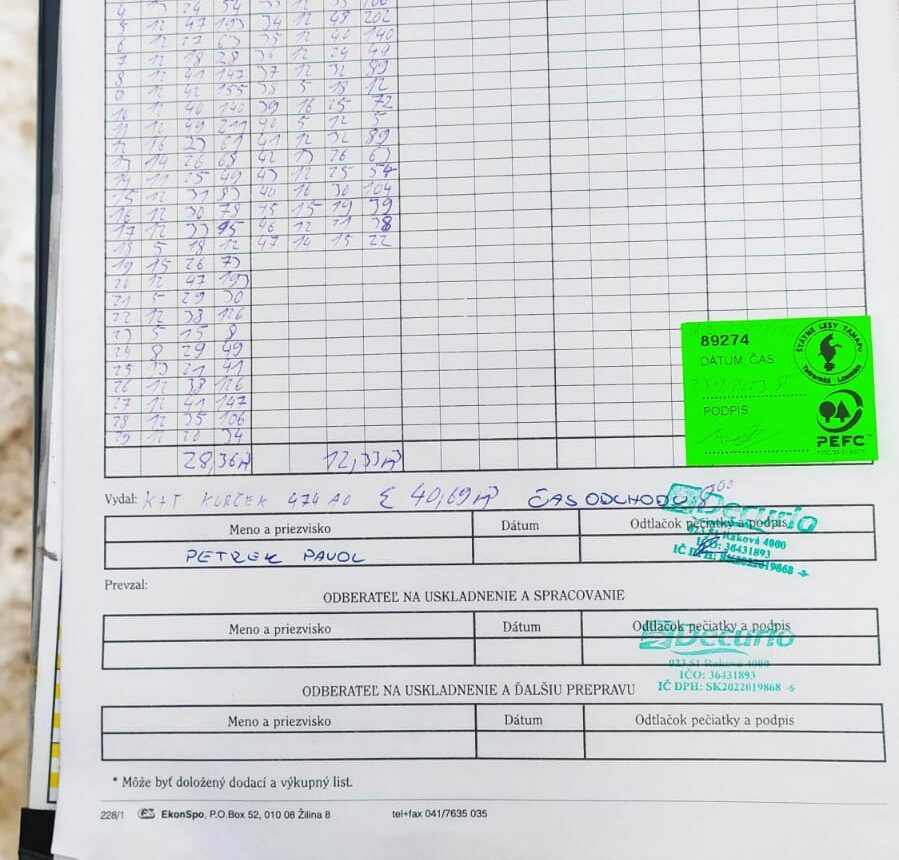 5 12 47 193 34 12 48 202
6 12 27 63 35 12 40 140
7 12 18 28 36 12 24 49
8 12 41 147 37 12 32 89
9 12 42 155 38 5 18 12
10 12 40 140 39 16 25 72
11 12 49 211 40 5 12 5
12 16 23 61 41 12 32 89
13 14 26 68 42 13 26 63
14 11 25 49 43 12 25 54
15 12 31 83 16 30 104
16 12 30 78 45 15 19 39
17 12 33 95 46 12 21 38
18 5 18 12 47 14 15 22
19 15 26 73
20 12 47 193
21 5 29 30
22 12 38 126
23 5 15 8
24 8 29 49
25 13 21 41
26 12 38 126
27 12 41 147
28 12 35 106
29 12 20 34
28,36 12,33
89274
DÁTUM, ČAS
PODPIS
ŠTÁTNE LESY TANAPU
Tatranská Lomnica
PEFC
Vydal: KAT KURČEK 474 A0 Σ 40,69 ČAS ODCHODU 8 00
Meno a priezvisko Dátum Odtlačok pečiatky a podpis
PETREK PAVOL
Decurio
023 51 Raková 4000
IČO: 36431893
IČ DPH: SK2022019868 -5-
Prevzal:
ODBERATEĽ NA USKLADNENIE A SPRACOVANIE
Meno a priezvisko Dátum Odtlačok pečiatky a podpis
Decurio
023 51 Raková 4000
IČO: 36431893
IČ DPH: SK2022019868 -5-
ODBERATEĽ NA USKLADNENIE A ĎALŠIU PREPRAVU
Meno a priezvisko Dátum Odtlačok pečiatky a podpis
* Môže byť doložený dodací a výkupný list.
228/1 EkonSpo, P.O.Box 52, 010 08 Žilina 8 tel+fax 041/7635 035